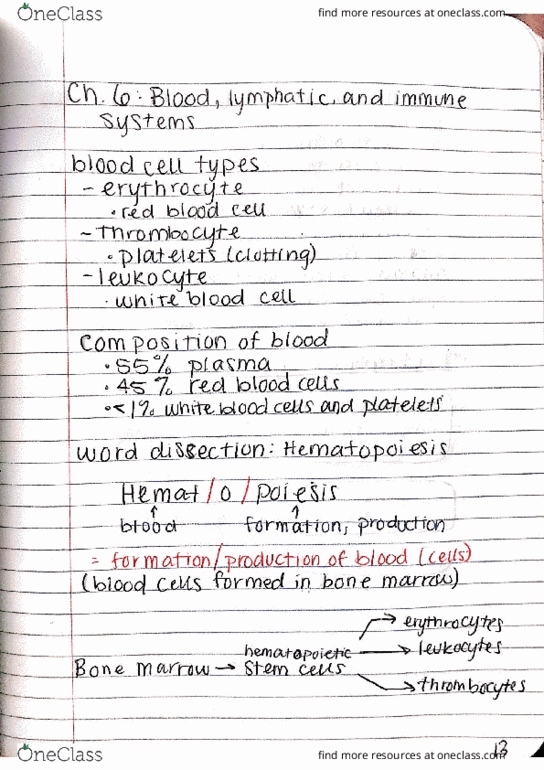 OneClass find more resources at oneclass.com
Ch. 6: Blood, lymphatic, and immune
systems
blood cell types
- erythrocyte
• red blood cell
- thrombocyte
• platelets (clotting)
- leukocyte
• white blood cell
composition of blood
• 55% plasma
• 45% red blood cells
• <1% white blood cells and platelets
word dissection: Hematopoiesis
Hemat/o/poiesis
↑ ↑
blood formation, production
= formation/production of blood (cells)
(blood cells formed in bone marrow)
→ erythrocytes
hematopoietic → leukocytes
Bone marrow → stem cells
→ thrombocytes
13
OneClass find more resources at oneclass.com